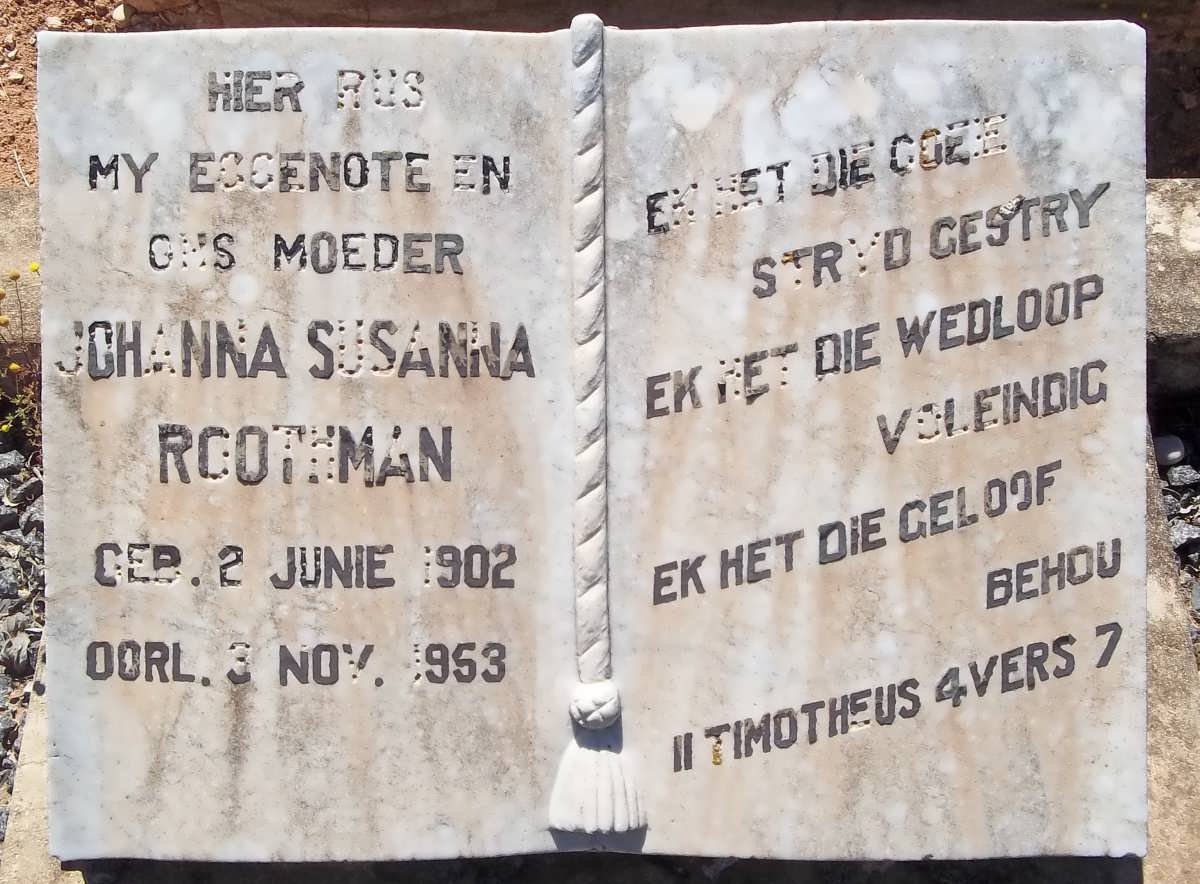 HIER RUS
MY EGGENOTE EN
ONS MOEDER
JOHANNA SUSANNA
ROOTHMAN
GEB. 2 JUNIE 1902
OORL. 3 NOV. 1953
EK HET DIE GOEIE
STRYD GESTRY
EK HET DIE WEDLOOP
VOLEINDIG
EK HET DIE GELOOF
BEHOU
II TIMOTHEUS 4 VERS 7